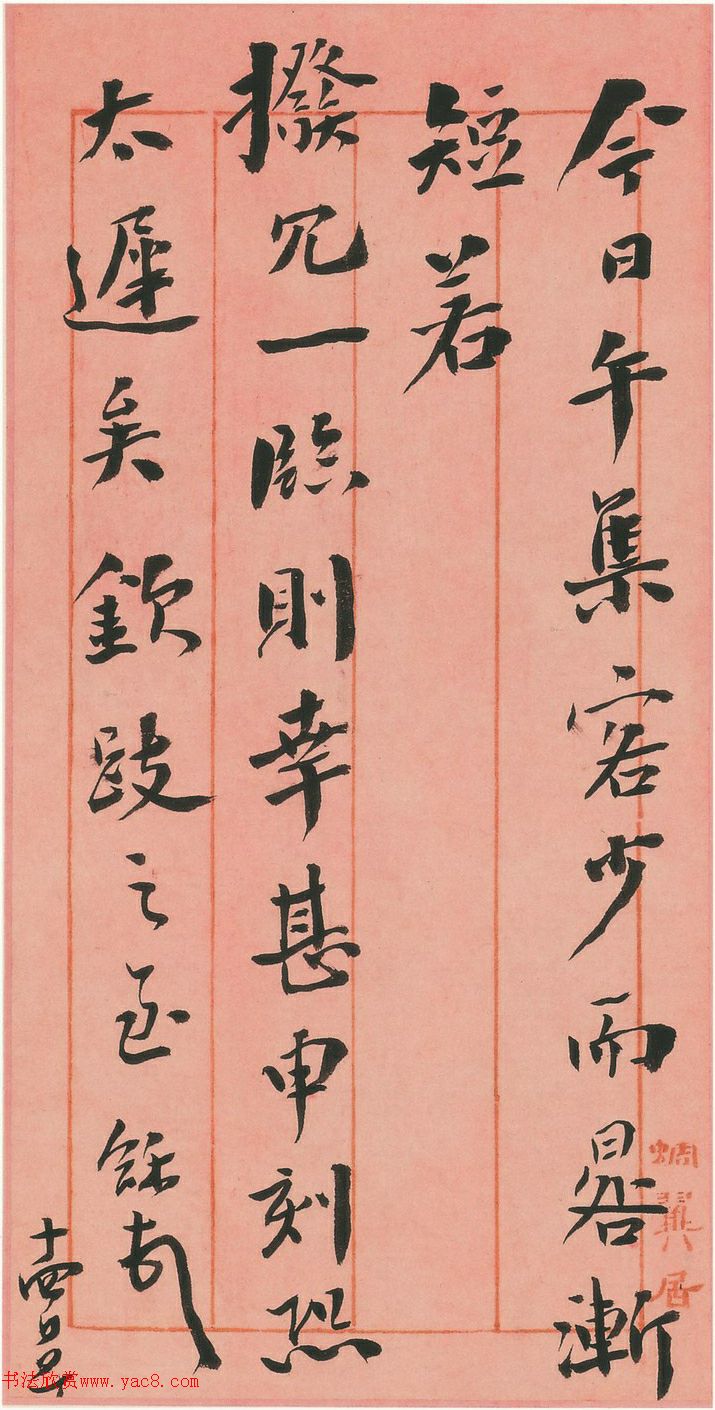 今日午集客少而晷漸
短若
撥冗一臨則幸甚申刻恐
太遲矣欽跂之至
十四日
蜩翼居
书法欣赏www.yac8.com